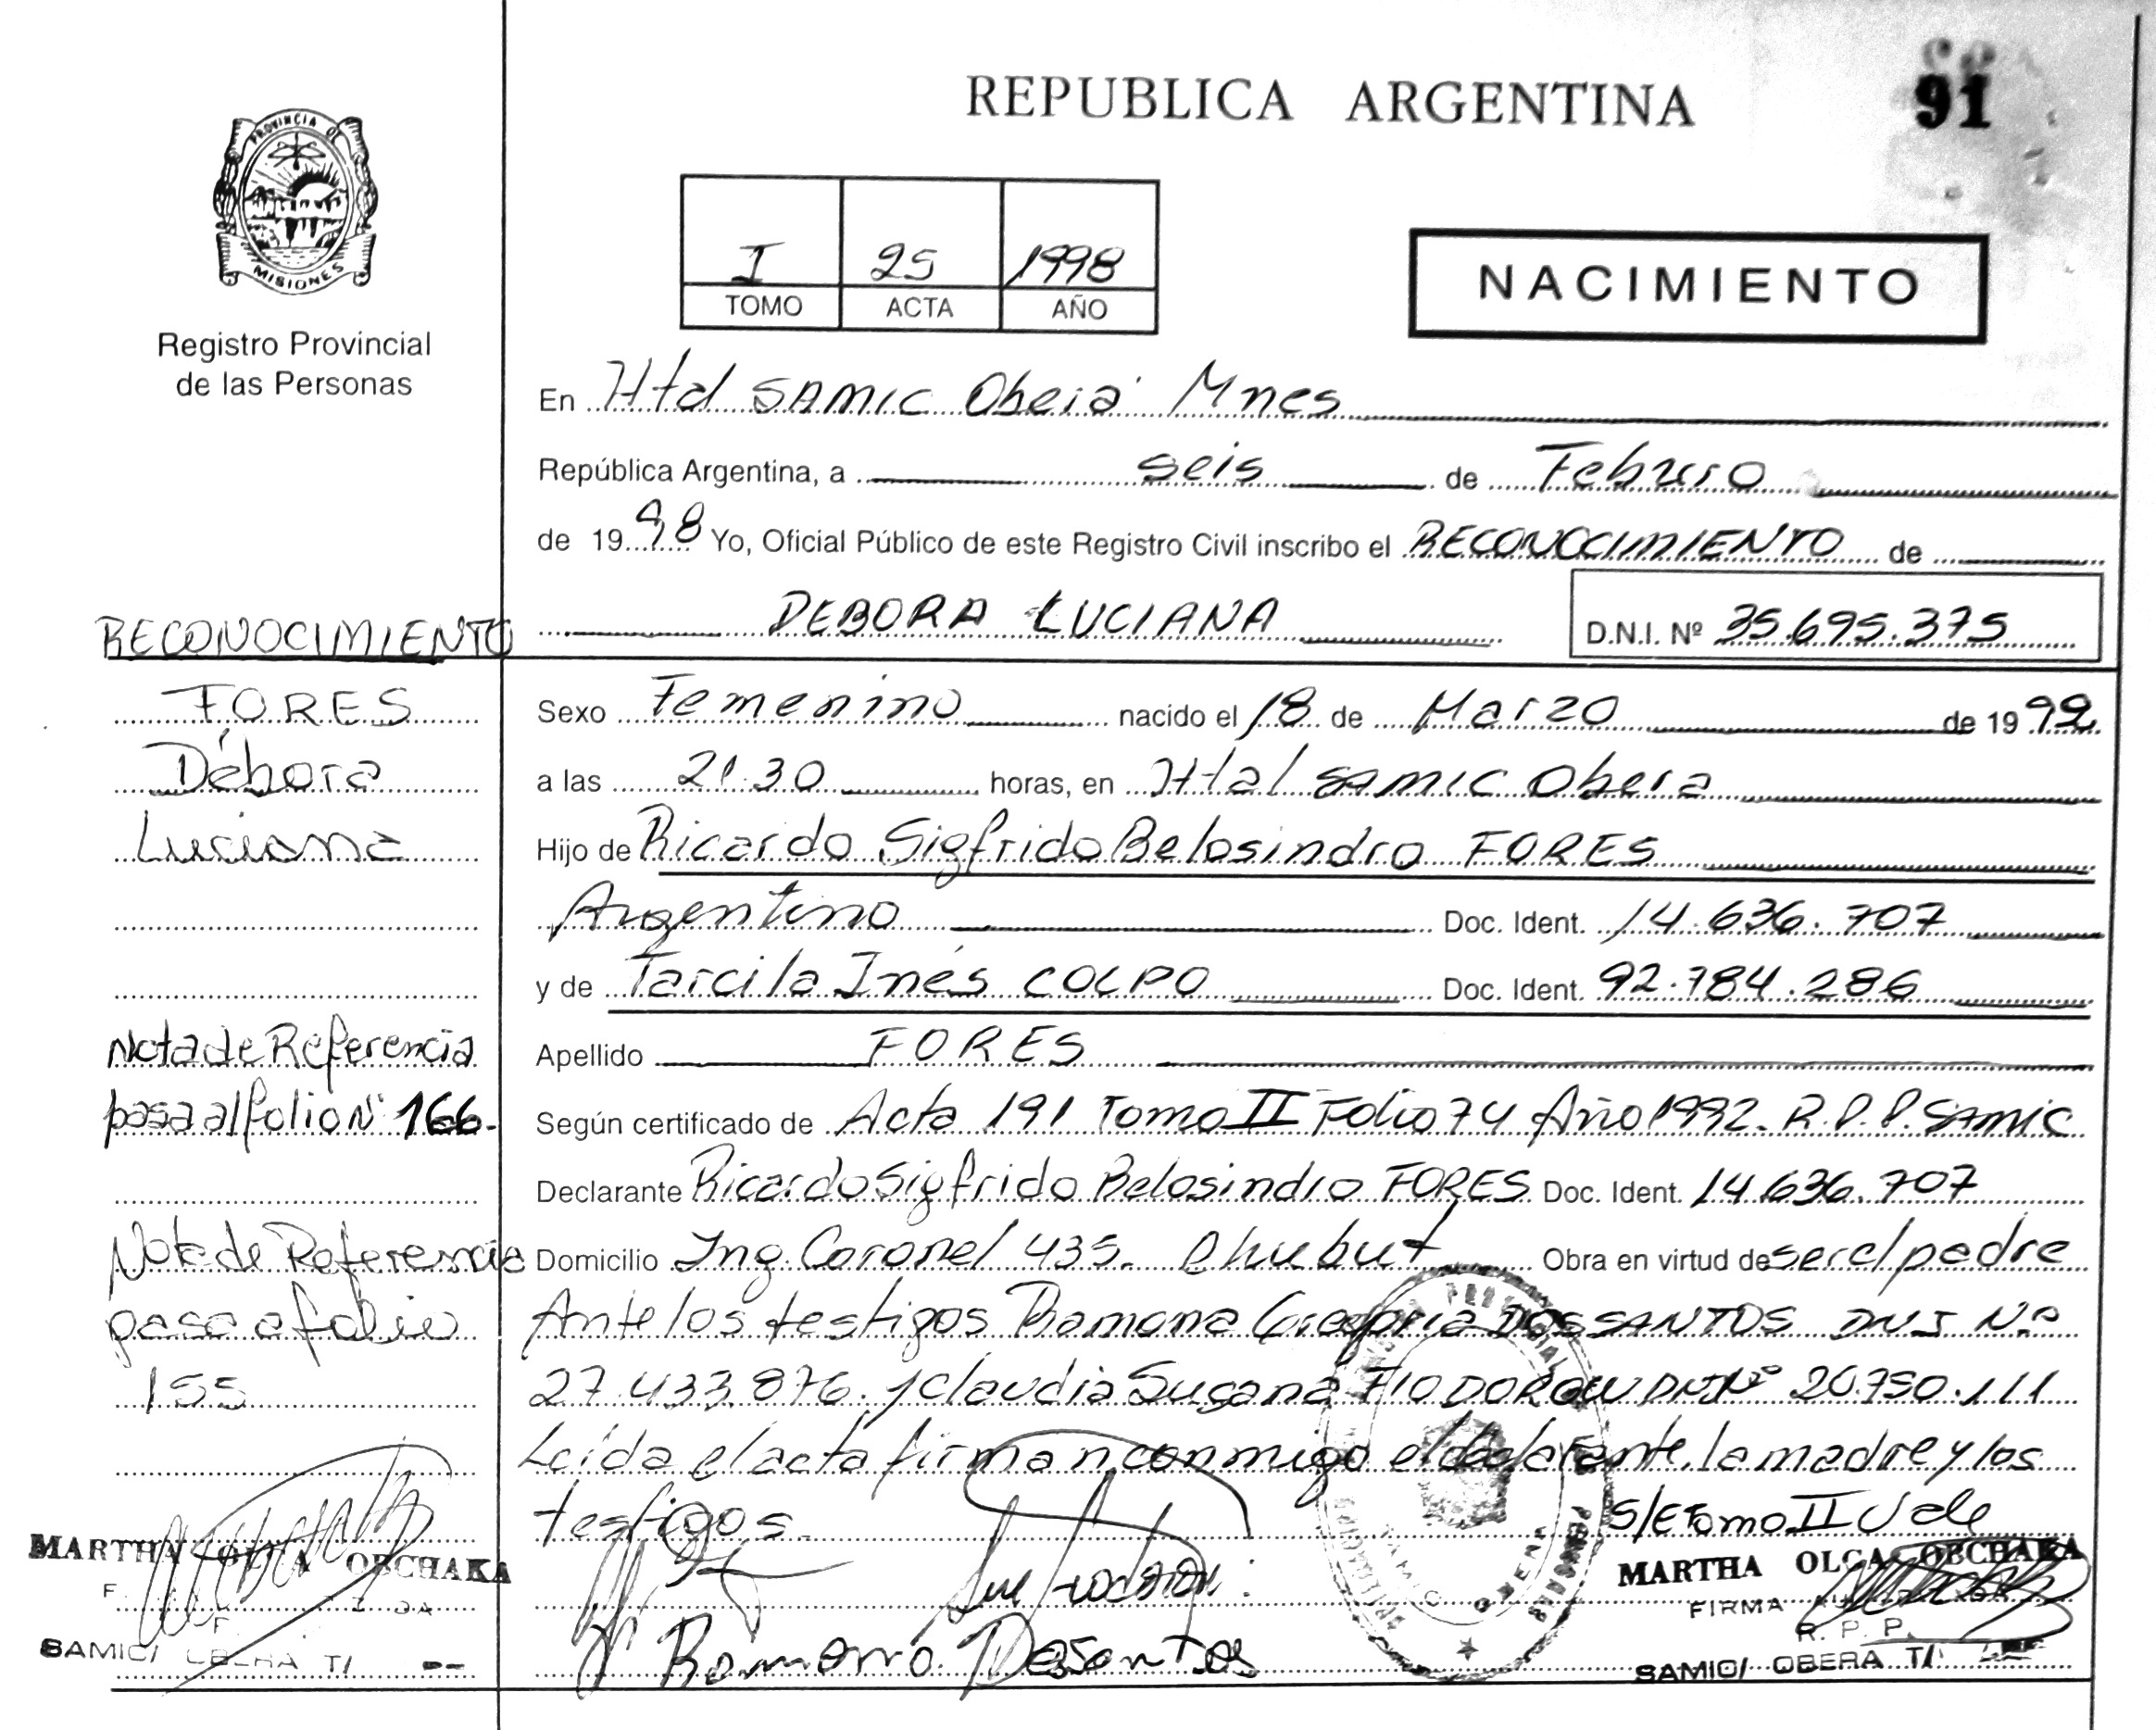 REPUBLICA ARGENTINA
91
PROVINCIA DE
MISIONES
Registro Provincial
de las Personas
I 25 1998
TOMO ACTA AÑO
NACIMIENTO
En Htal SAMIC Oberá Mnes
República Argentina, a seis de Febrero
de 1998 Yo, Oficial Público de este Registro Civil inscribo el RECONOCIMIENTO de
DEBORA LUCIANA D.N.I. Nº 35.695.375
RECONOCIMIENTO
FORES
Débora
Luciana
Nota de Referencia
pasa al folio Nº 166-
Nota de Referencia
pasa a folio
155
MARTHA OLGA OBCHAKA
SAMIC/ OBERA
Sexo Femenino nacido el 18 de Marzo de 1992
a las 21.30 horas, en Htal SAMIC Obera
Hijo de Ricardo Sigfrido Belosindro FORES
Argentino Doc. Ident. 14.636.707
y de Tarcila Inés COLPO Doc. Ident. 92.784.286
Apellido FORES
Según certificado de Acta 191 Tomo II Folio 74 Año 1992. R.P.P. SAMIC
Declarante Ricardo Sigfrido Belosindro FORES Doc. Ident. 14.636.707
Domicilio Ing. Coronel 435. Chubut Obra en virtud de ser el padre
Ante los testigos Ramona Gregoria DOS SANTOS DNI N.º
27.433.876. y Claudia Susana FIODOROW DNI Nº 20.750.111
Leída el acta firman conmigo el declarante, la madre y los
testigos.
S/E Tomo II Vale
MARTHA OLGA OBCHAKA
FIRMA
R. P. P.
SAMIC/ OBERA
Ramona Dossantos